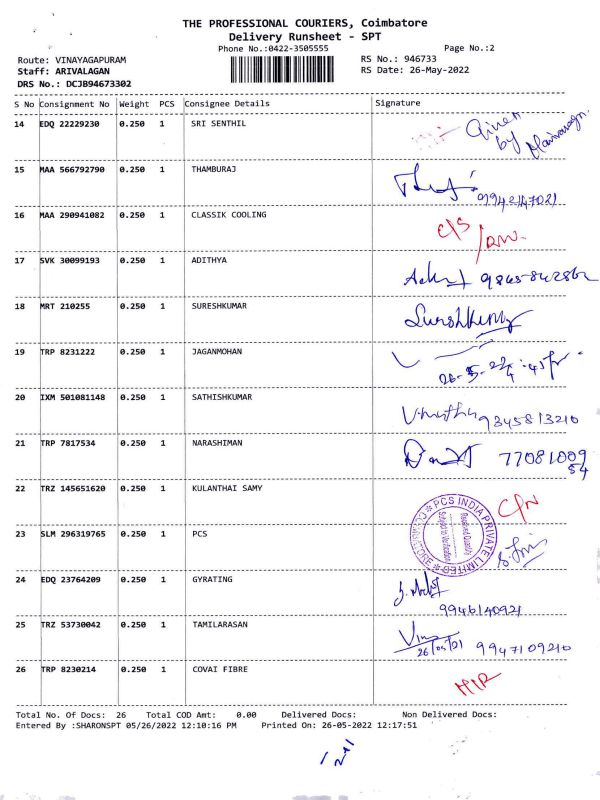 THE PROFESSIONAL COURIERS, Coimbatore
Delivery Runsheet - SPT
Phone No.:0422-3505555 Page No.:2
Route: VINAYAGAPURAM RS No.: 946733
Staff: ARIVALAGAN RS Date: 26-May-2022
DRS No.: DCJB94673302
S No Consignment No Weight PCS Consignee Details Signature
14 EDQ 22229230 0.250 1 SRI SENTHIL Given by
15 MAA 566792790 0.250 1 THAMBURAJ 9942147021
16 MAA 290941082 0.250 1 CLASSIK COOLING C/S
17 SVK 30099193 0.250 1 ADITHYA 9865842862
18 MRT 210255 0.250 1 SURESHKUMAR
19 TRP 8231222 0.250 1 JAGANMOHAN
20 IXM 501081148 0.250 1 SATHISHKUMAR 9345813210
21 TRP 7817534 0.250 1 NARASHIMAN 7708100954
22 TRZ 145651620 0.250 1 KULANTHAI SAMY
23 SLM 296319765 0.250 1 PCS PCS INDIA PRIVATE LIMITED * COIMBATORE * Received Quantity Subject to Verification
24 EDQ 23764209 0.250 1 GYRATING 9946140921
25 TRZ 53730042 0.250 1 TAMILARASAN 9947109210
26 TRP 8230214 0.250 1 COVAI FIBRE
Total No. Of Docs: 26 Total COD Amt: 0.00 Delivered Docs: Non Delivered Docs:
Entered By :SHARONSPT 05/26/2022 12:10:16 PM Printed On: 26-05-2022 12:17:51